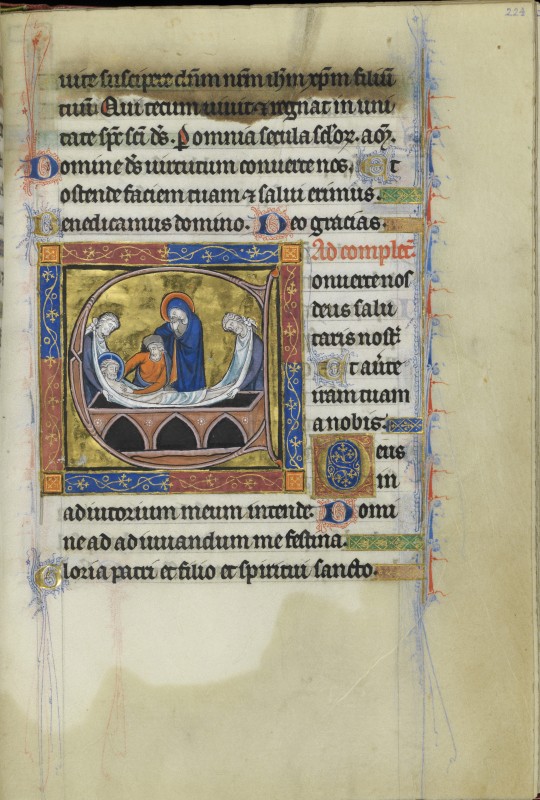 224
uire suscipere dūm nr̄m ihm xp̄m filiū
tuū Qui tecum uiuit ⁊ regnat in uni
tate spc̄ sc̄i ds̄. P omnia secula sclōꝝ. am̄.
Domine ds̄ uirtutum conuerte nos. Et
ostende faciem tuam ⁊ salui erimus.
Benedicamus domino. Deo gracias.
Ad complet̄.
Conuerte nos
deus salu
taris nost̄
Et au̾te
iram tuam
a nobis.
Deus
in
adiutorium meum intende. Domi
ne ad adiuuandum me festina.
Gloria patri et filio et spiritui sancto.